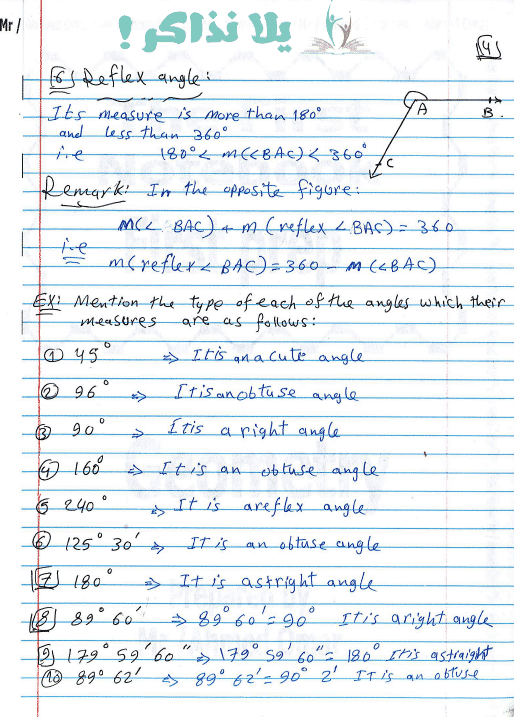 Mr /
يلا نذاكر !
[4]
[6] Reflex angle:
Its measure is more than 180°
and less than 360°
i.e 180° < m(<BAC) < 360°
A
B
C
Remark: In the opposite figure:
m(< BAC) + m (reflex < BAC) = 360
i-e
m(reflex < BAC) = 360 - m (<BAC)
EX: Mention the type of each of the angles which their
measures are as follows:
① 45° => It is an acute angle
② 96° => It is an obtuse angle
③ 90° => It is a right angle
④ 160° => It is an obtuse angle
⑤ 240° => It is a reflex angle
⑥ 125° 30' => IT is an obtuse angle
[7] 180° => It is a stright angle
[8] 89° 60' => 89° 60' = 90° It is a right angle
[9] 179° 59' 60" => 179° 59' 60" = 180° It is a straight
⑩ 89° 62' => 89° 62' = 90° 2' IT is an obtuse